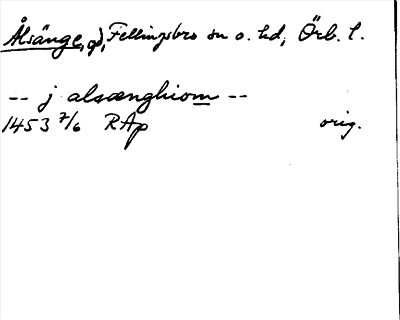 Ålsänge, gd, Fellingsbro sn o. hd, Örb. l.
-- j alsænghiom --
1453 7/6 RAp orig.